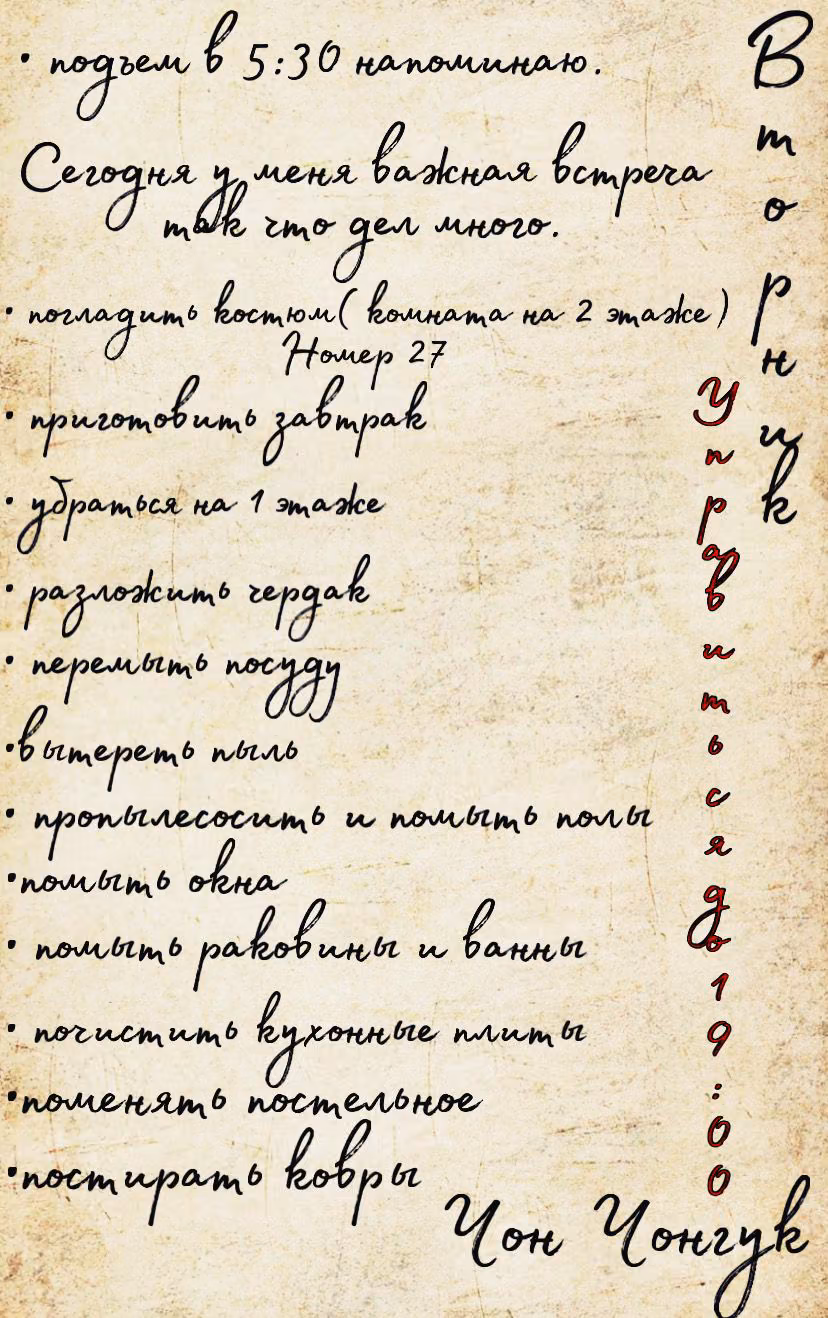 • подъем в 5:30 напоминаю.
Сегодня у меня важная встреча
так что дел много.
• погладить костюм( комната на 2 этаже)
Номер 27
• приготовить завтрак
• убраться на 1 этаже
• разложить чердак
• перемыть посуду
•вытереть пыль
• пропылесосить и помыть полы
•помыть окна
• помыть раковины и ванны
• почистить кухонные плиты
•поменять постельное
•постирать ковры
Чон Чонгук
Вторник
Управиться до 19:00